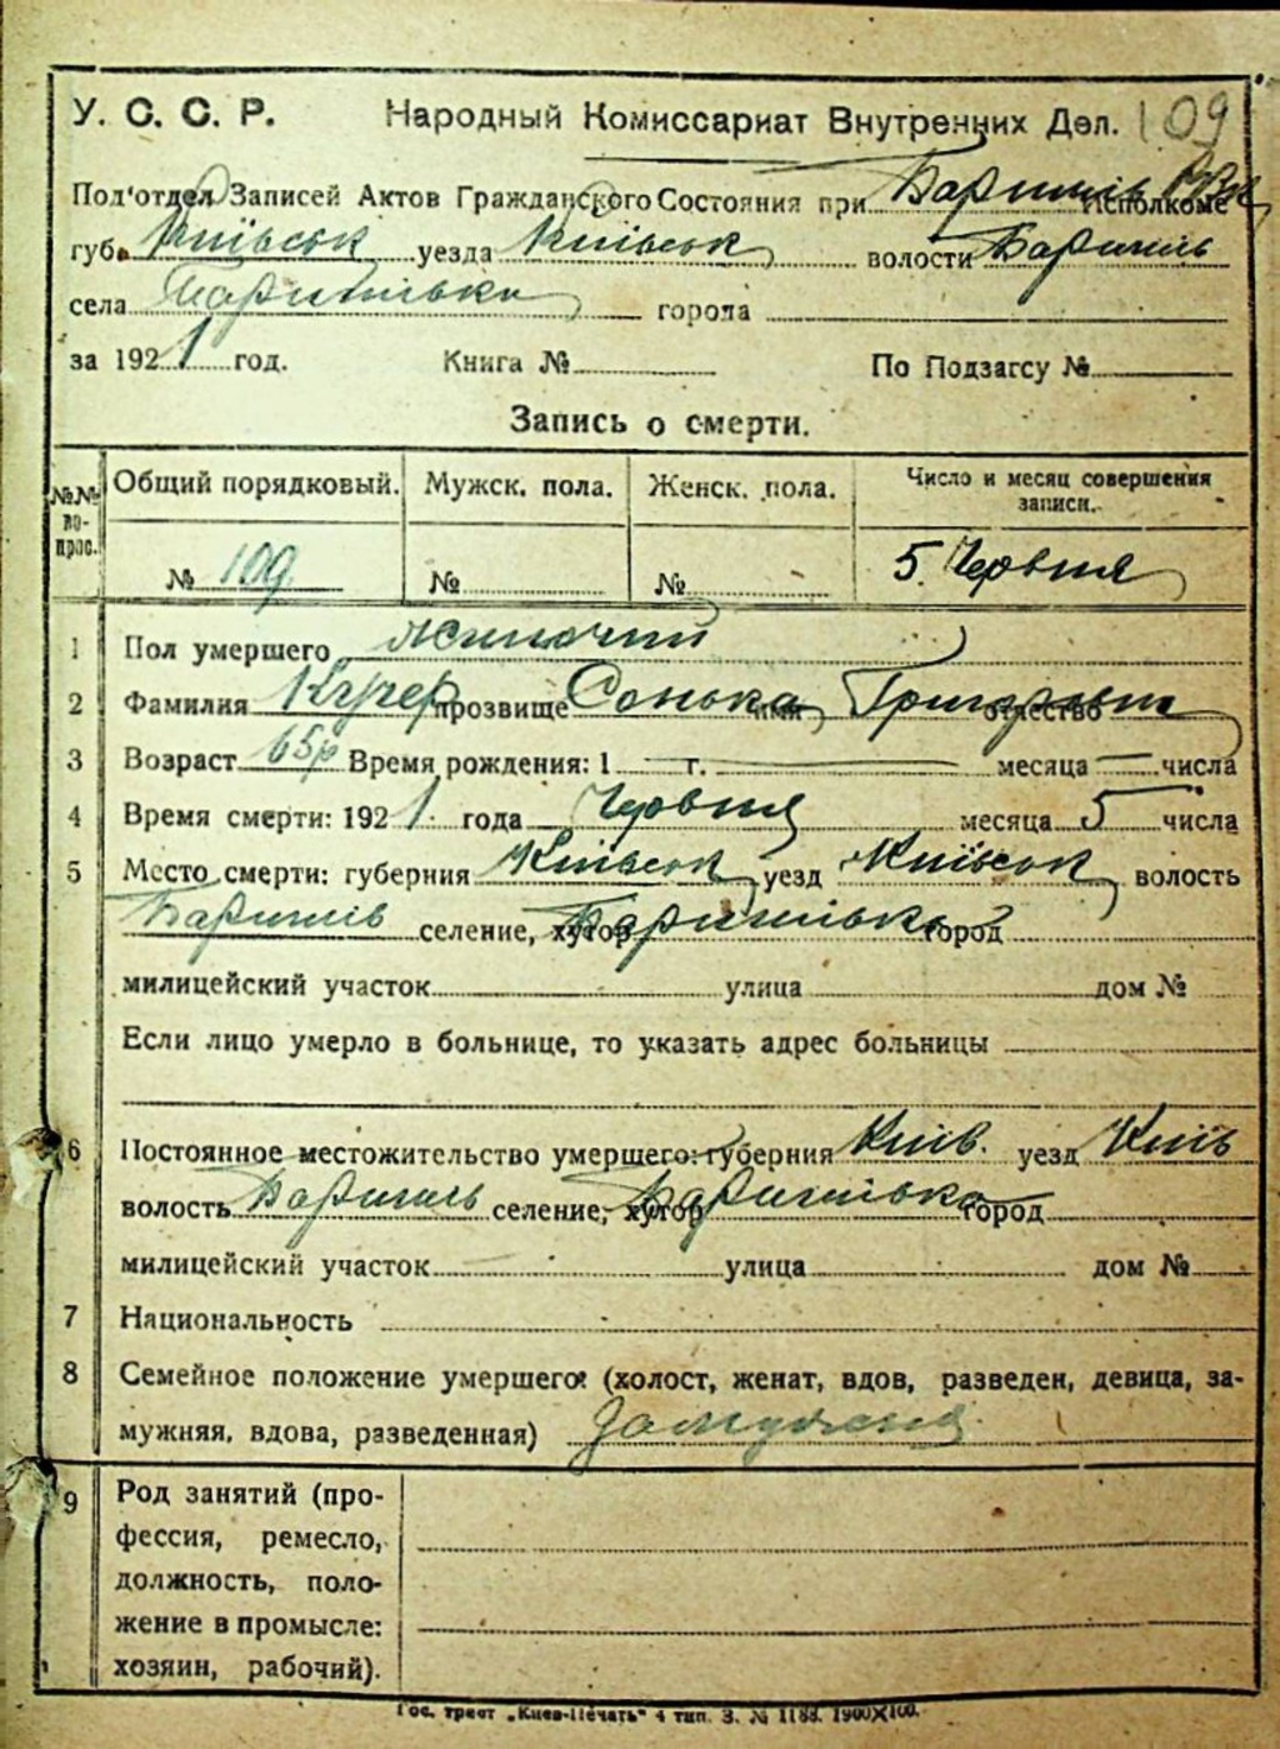 У. С. С. Р. Народный Комиссариат Внутренних Дел. 109
Под'отдел Записей Актов Гражданского Состояния при Баришів Исполкоме
губ. Київськ уезда Київськ волости Баришів
села Баришівки города
за 1921 год. Книга № По Подзагсу №
Запись о смерти.
№№ во-прос. Общий порядковый. Мужск. пола. Женск. пола. Число и месяц совершения записи.
№ 109 № № 5 Червня
1 Пол умершего жиночий
2 Фамилия Кучер прозвище Сонька имя отчество
3 Возраст 65р Время рождения: 1 г. месяца числа
4 Время смерти: 1921 года Червня месяца 5 числа
5 Место смерти: губерния Київськ уезд Київськ волость
Баришів селение, хутор Баришівка город
милицейский участок улица дом №
Если лицо умерло в больнице, то указать адрес больницы
6 Постоянное местожительство умершего: губерния Київ. уезд Київ
волость Баришів селение, хутор Баришівка город
милицейский участок улица дом №
7 Национальность
8 Семейное положение умершего: (холост, женат, вдов, разведен, девица, за-
мужняя, вдова, разведенная) Замужня
9 Род занятий (про-
фессия, ремесло,
должность, поло-
жение в промысле:
хозяин, рабочий).
Гос. трест „Киев-Печать" 4 тип. З. № 1188. 1900X100.